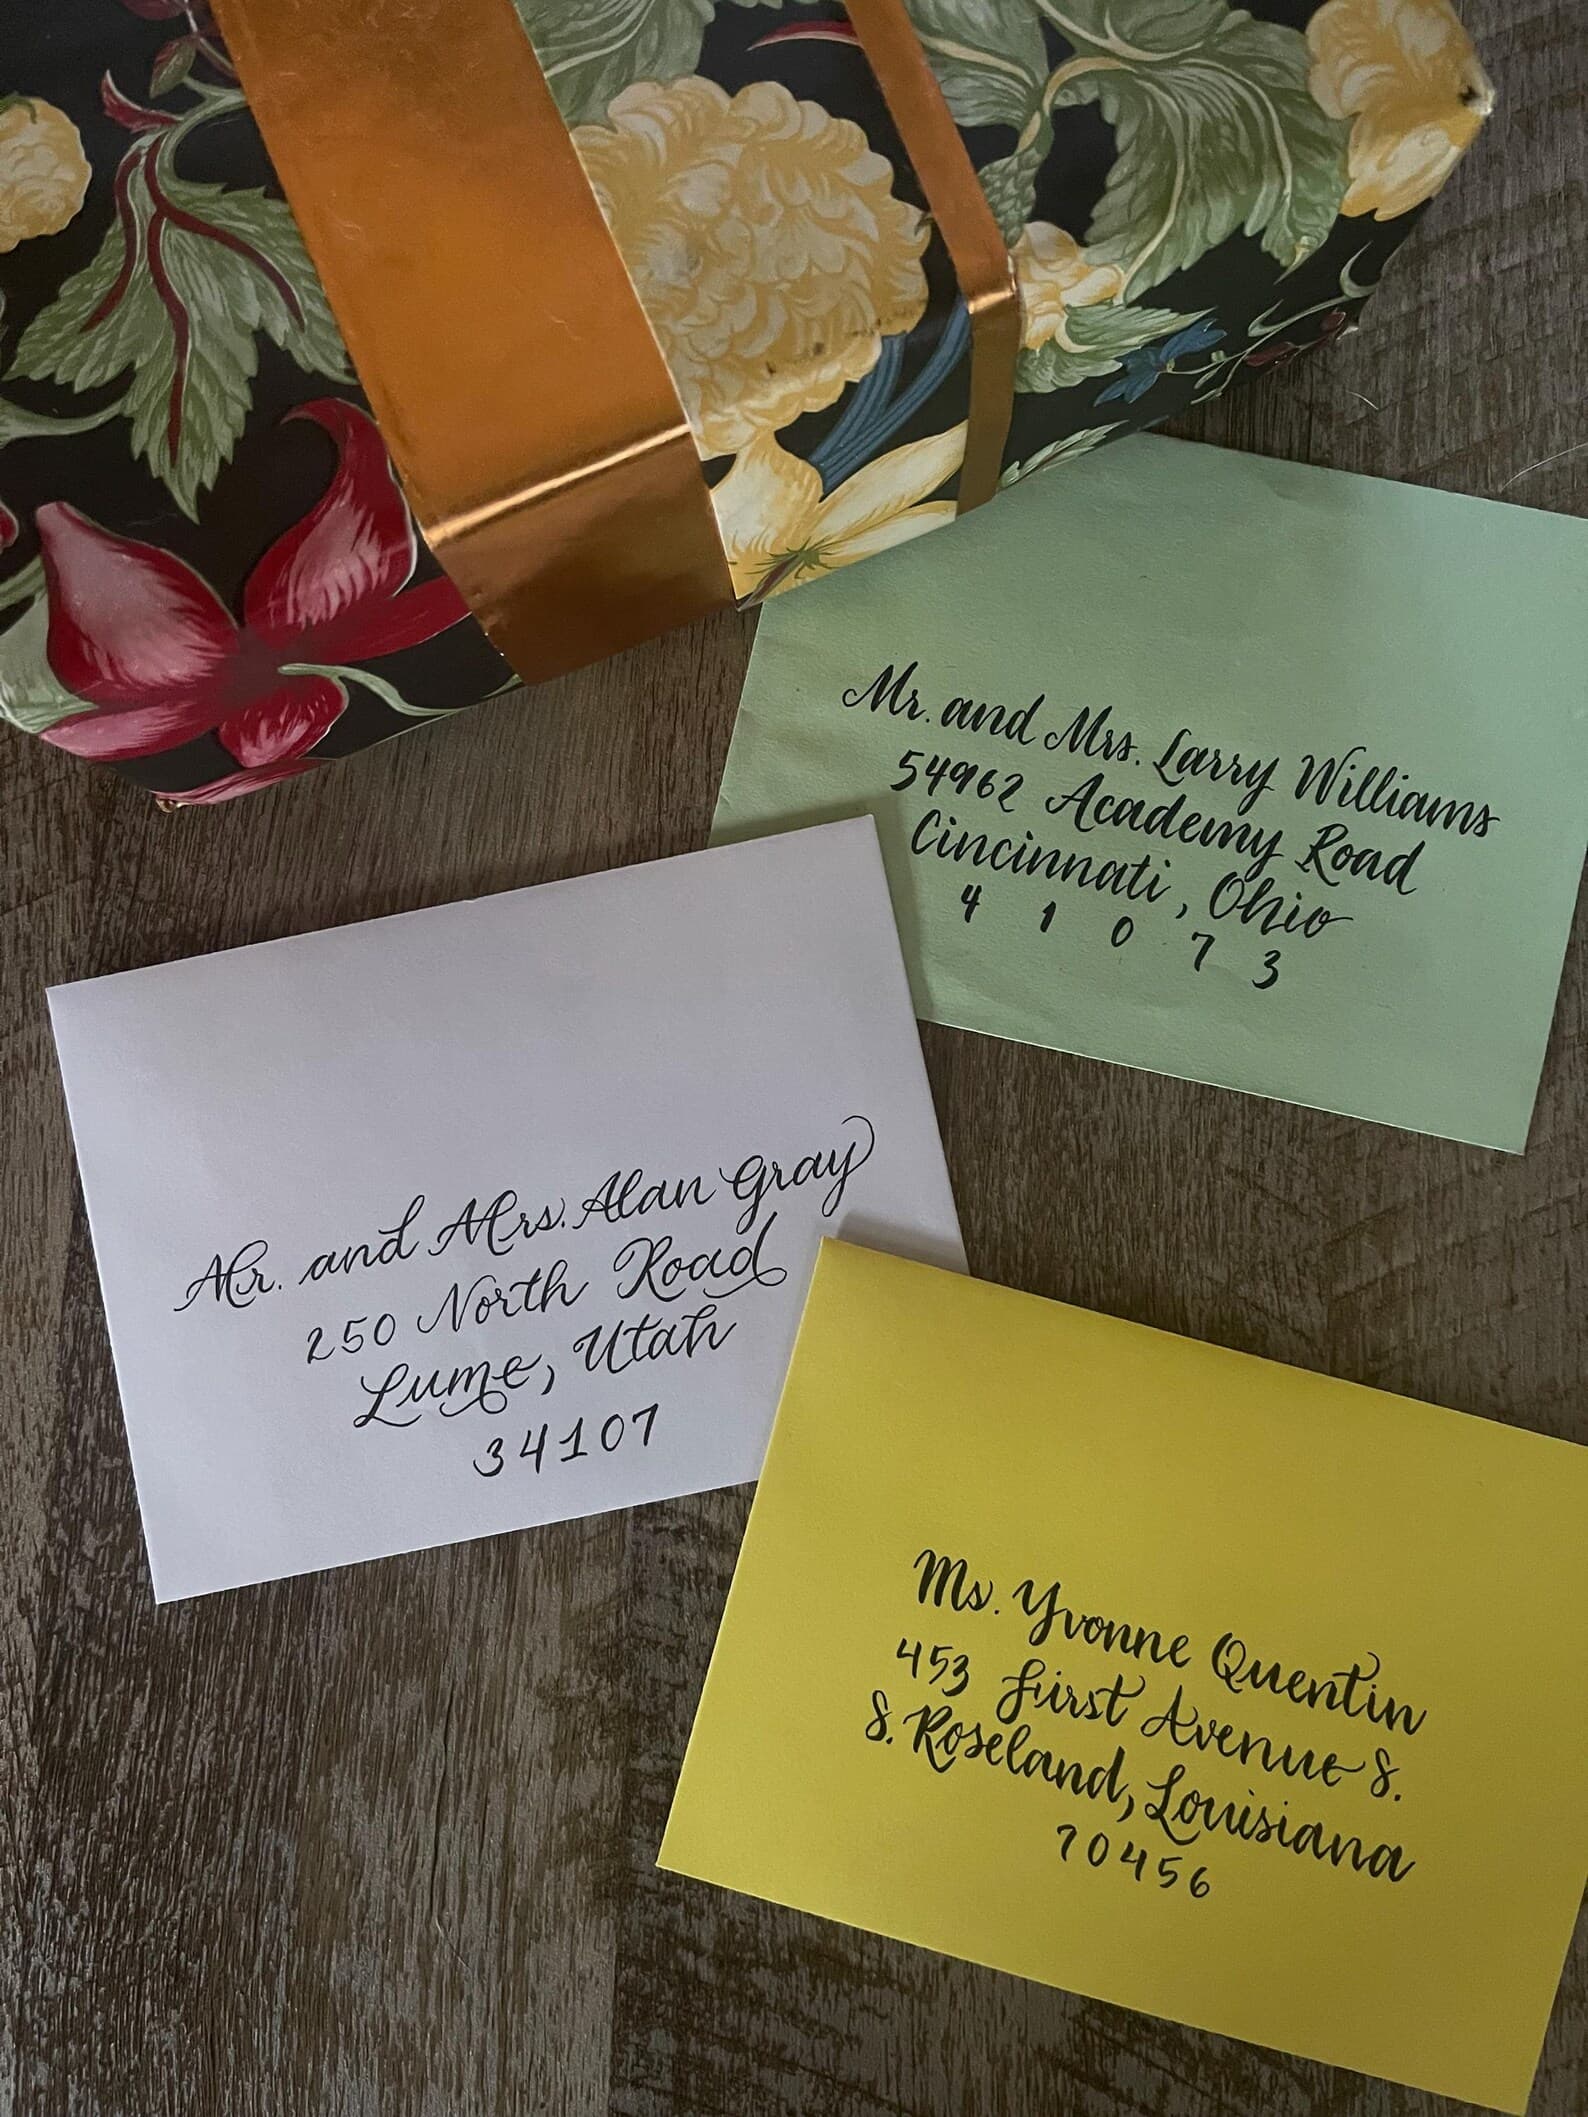 Mr. and Mrs. Larry Williams
54962 Academy Road
Cincinnati, Ohio
4 1 0 7 3
Mr. and Mrs. Alan Gray
250 North Road
Lume, Utah
34107
Ms. Yvonne Quentin
453 First Avenue S.
S. Roseland, Louisiana
70456